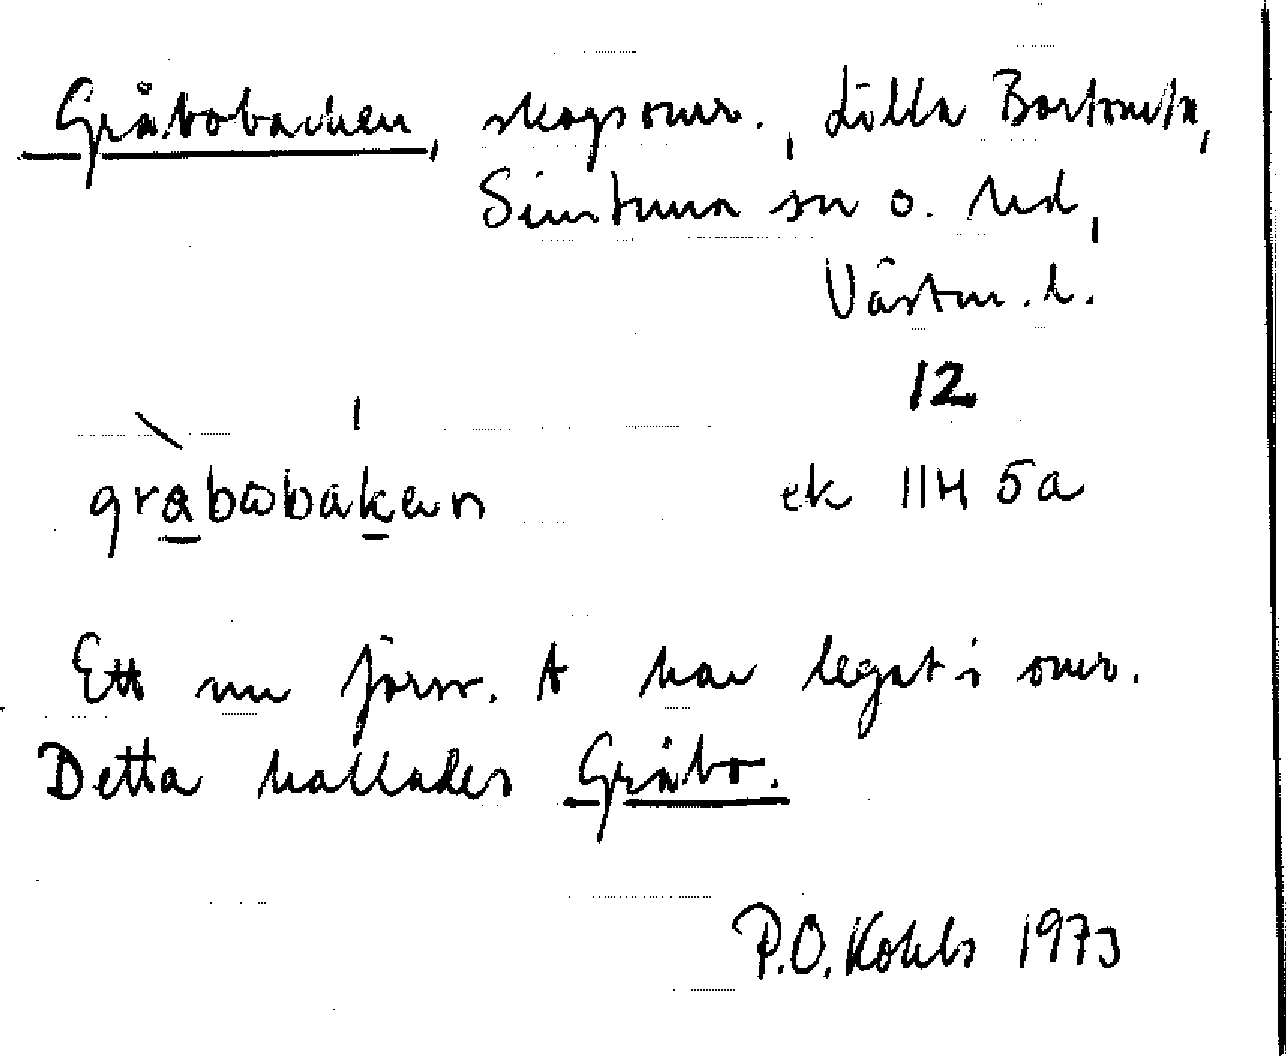 Gråbobacken, skogsomr., Lilla Bärtomta,
Simtuna sn o. hd,
Västm. l.
12
gråbobaken ek 11H 5a
Ett nu försv. t har legat i omr.
Detta kallades Gråbo.
P.O. Kohls 1973